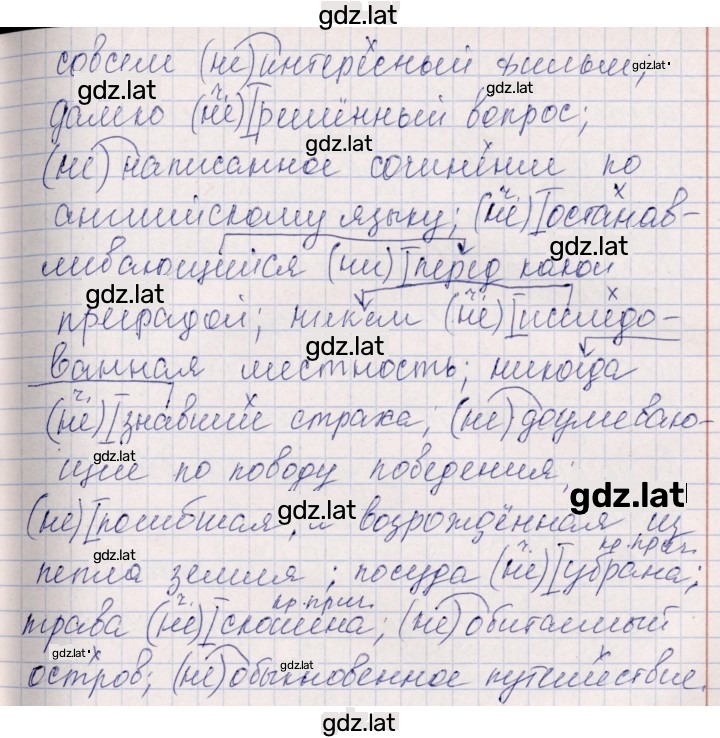 gdz.lat
совсем (не) интересный фильм; gdz.lat
gdz.lat gdz.lat
далеко (не) решённый вопрос;
gdz.lat
(не) написанное сочинение по
английскому языку; (не) останав-
gdz.lat
ливающийся (ни) перед какой
gdz.lat
преградой; никем (не) исследо-
gdz.lat
ванная местность; никогда
(не) знавшие страха; (не) доумеваю-
gdz.lat
щие по поводу поведения;
gdz.lat
(не) погибшая, а возрождённая из
gdz.lat
gdz.lat кр. прич.
пепла земля; посуда (не) убрана;
кр. прич.
трава (не) скошена; (не) обитаемый
gdz.lat gdz.lat
остров; (не) обыкновенное путешествие.
gdz.lat